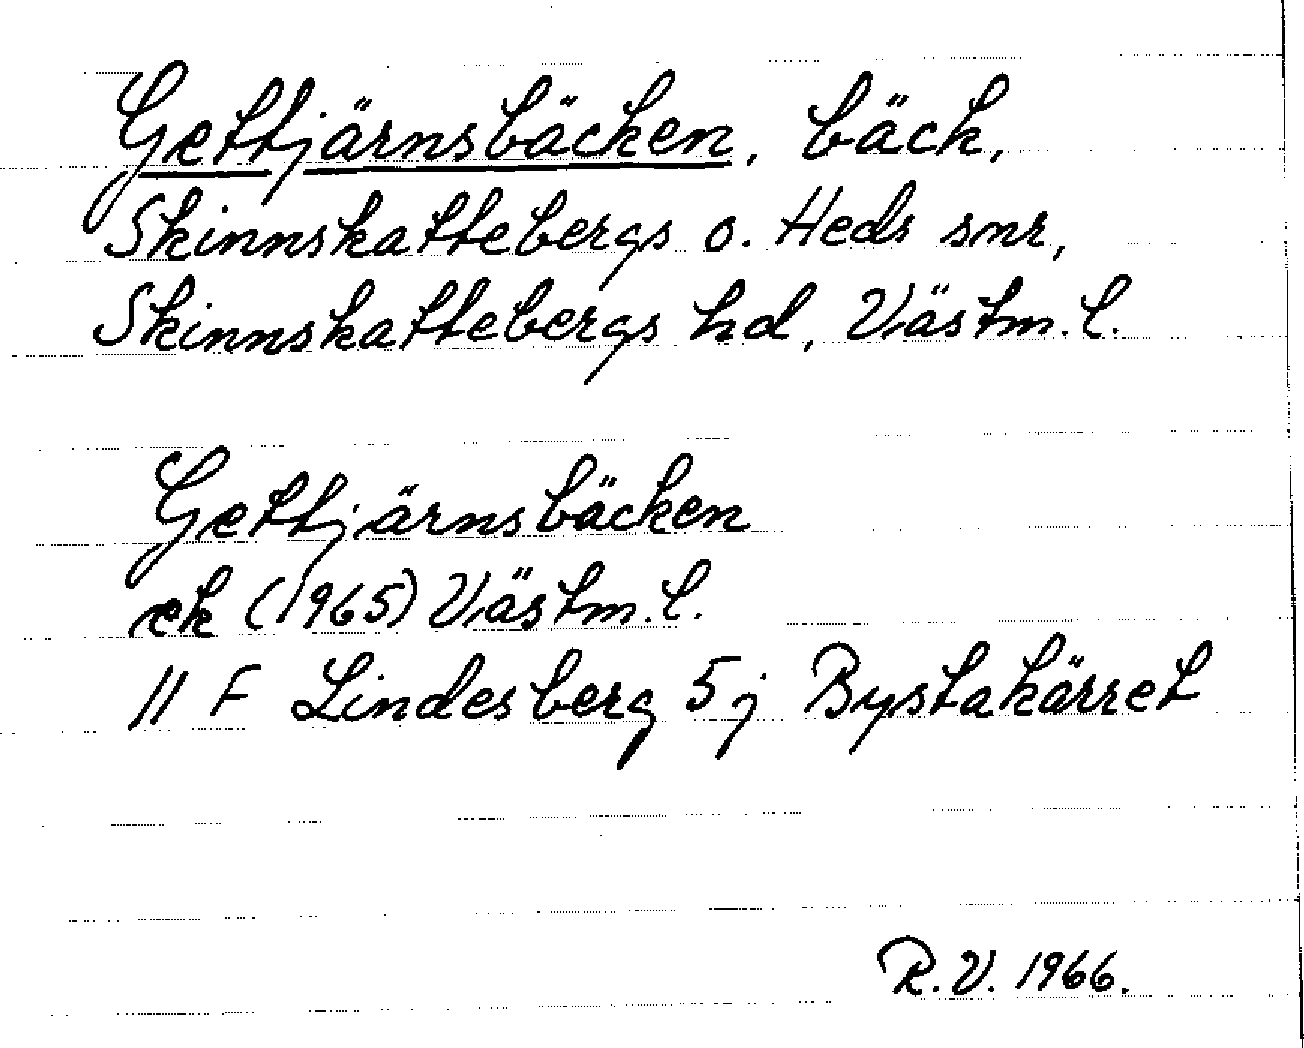 Gettjärnsbäcken, bäck,
Skinnskattebergs o. Heds snr,
Skinnskattebergs hd, Västm. l.
Gettjärnsbäcken
ek (1965) Västm. l.
11 F Lindesberg 5 j Bystakärret
R. V. 1966.